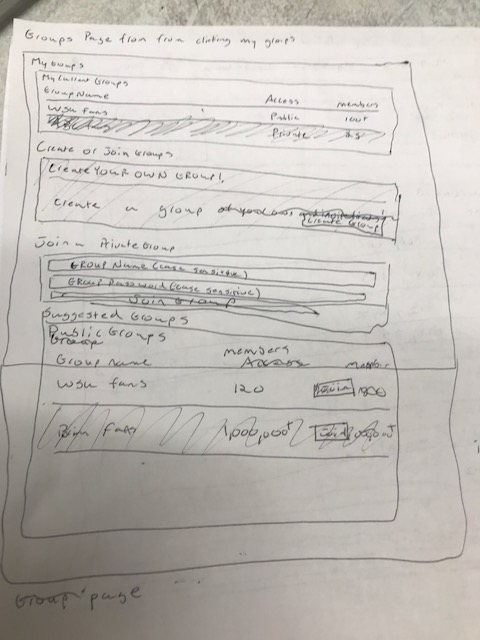 Groups Page from from clicking my groups
My Groups
My Current Groups
Group Name Access members
WSU Fans Public 100+
Private
Create or Join Groups
Create YOUR OWN GROUP!
Create a group Create Group
Join a Private Group
GROUP Name (case sensitive)
GROUP Password (case sensitive)
Join Group
Suggested Groups
Public Groups
Group members
Group name Access
WSU fans 120 Join
fans 1,000,000+ Join
Group page